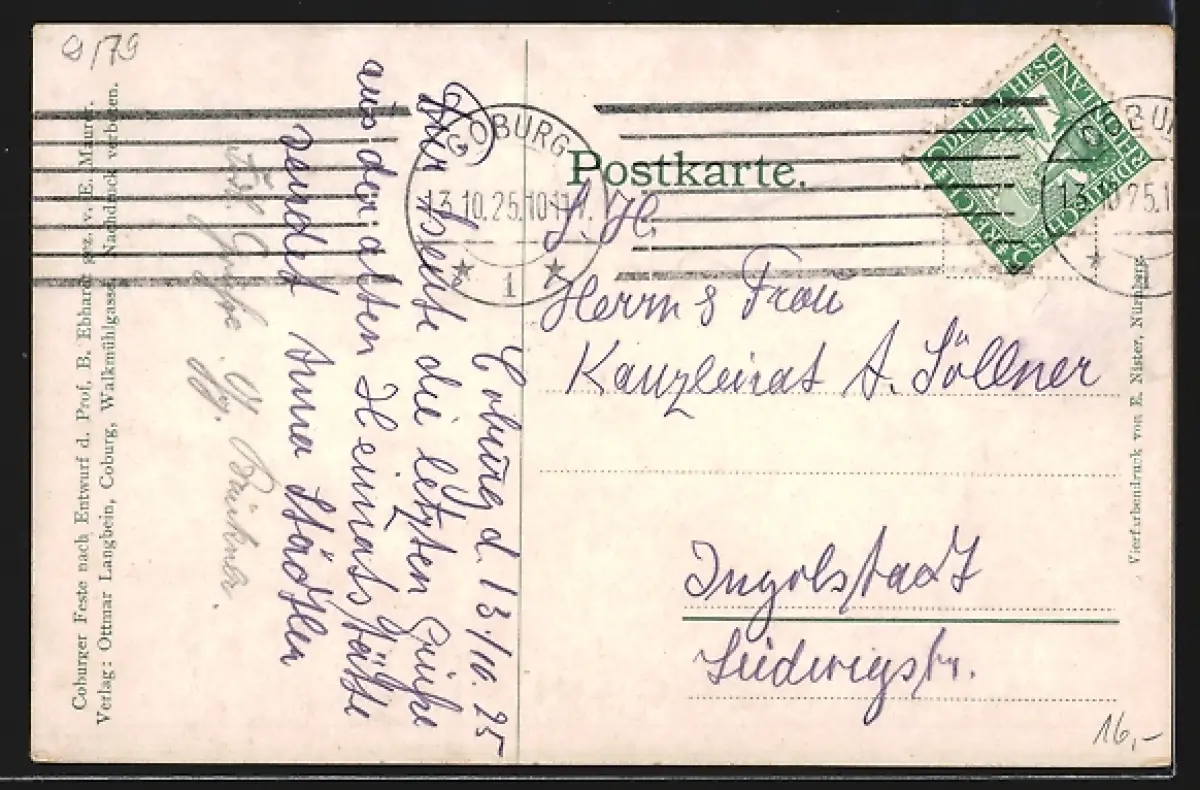 Coburg d. 13/10. 25
Für Heute die letzten Grüße
aus der alten Heimatstätte
sendet Anna Städtler
Grüße
Brückner.
Coburger Feste nach Entwurf d. Prof. B. Ebhardt gez. v. E. Maurer.
Verlag: Ottmar Langbein, Coburg, Walkmühlgasse. Nachdruck verboten.
9/79
COBURG
13.10.25.10-11V.
1
Postkarte.
S. H.
Herrn & Frau
Kanzleirat A. Söllner
Ingolstadt
Ludwigstr.
Vierfarbendruck von E. Nister, Nürnberg.
DEUTSCHES REICH
RHEINLAND
13.10.25.1
1
16,-